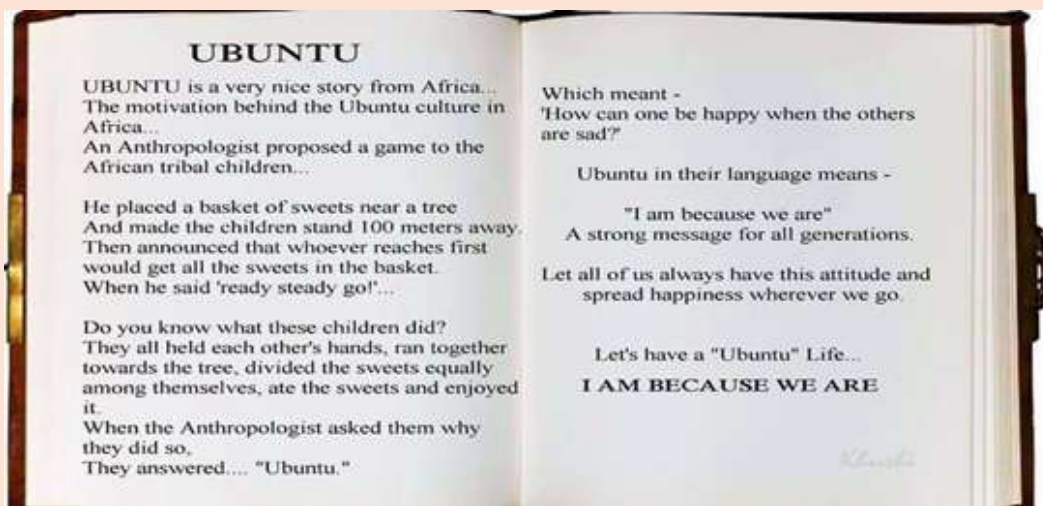 UBUNTU
UBUNTU is a very nice story from Africa...
The motivation behind the Ubuntu culture in
Africa...
An Anthropologist proposed a game to the
African tribal children...
He placed a basket of sweets near a tree
And made the children stand 100 meters away.
Then announced that whoever reaches first
would get all the sweets in the basket.
When he said 'ready steady go!'...
Do you know what these children did?
They all held each other's hands, ran together
towards the tree, divided the sweets equally
among themselves, ate the sweets and enjoyed
it.
When the Anthropologist asked them why
they did so,
They answered.... "Ubuntu."
Which meant -
'How can one be happy when the others
are sad?'
Ubuntu in their language means -
"I am because we are"
A strong message for all generations.
Let all of us always have this attitude and
spread happiness wherever we go.
Let's have a "Ubuntu" Life...
I AM BECAUSE WE ARE
Khushi